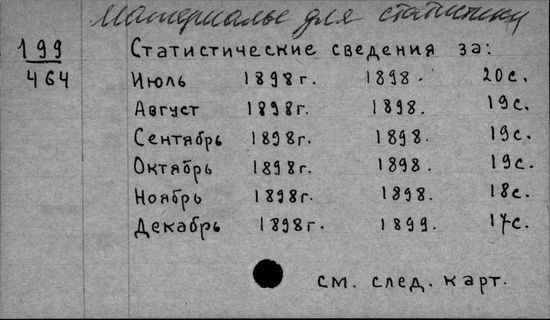 Материалы для статистики
199 Статистические сведения за:
464 Июль 1898г. 1898. 20с.
Август 1898г. 1898. 19с.
Сентябрь 1898г. 1898. 19с.
Октябрь 1898г. 1898. 19с.
Ноябрь 1898г. 1898. 18с.
Декабрь 1898г. 1899. 17с.
см. след. карт.